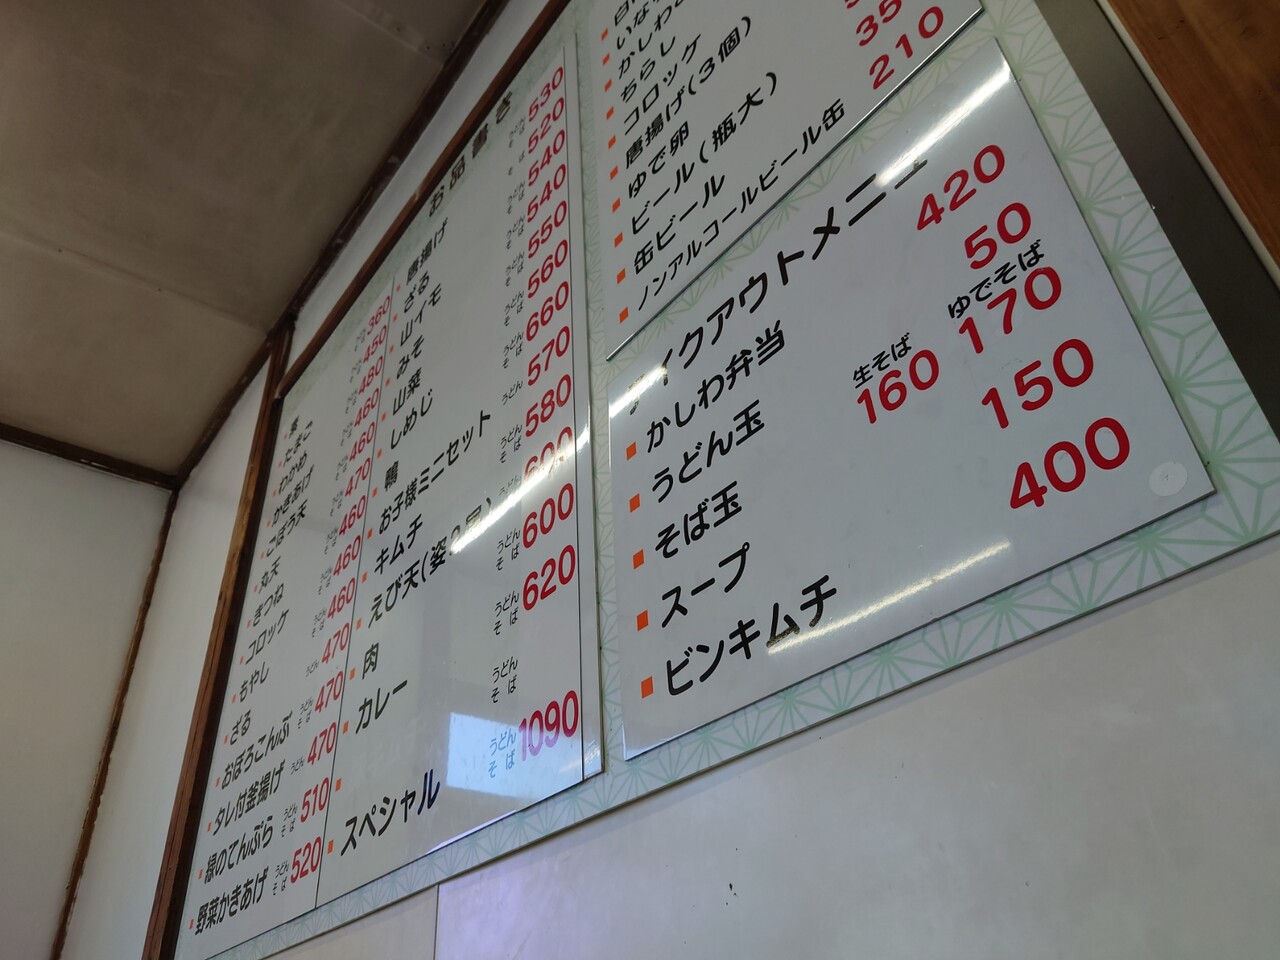 お品書き
唐揚げ うどん そば 530
ざる 520
山イモ うどん そば 540
みそ うどん そば 540
山菜 うどん そば 550
しめじ うどん そば 560
鴨 うどん そば 660
お子様ミニセット うどん 570
キムチ うどん そば 580
えび天(姿 うどん 600
肉 うどん そば 600
カレー うどん そば 620
うどん そば
スペシャル うどん そば 1090
360
たまご 450
わかめ 480
かきあげ 460
ごぼう天 460
丸天 470
きつね 460
コロッケ 460
もやし 460
ざる 470
おぼろこんぶ うどん そば 470
タレ付釜揚げ うどん 470
緑のてんぷら うどん そば 510
野菜かきあげ うどん そば 520
ちらし
コロッケ
唐揚げ(3個)
ゆで卵
ビール(瓶大)
缶ビール
ノンアルコールビール缶 210
イクアウトメニュー
かしわ弁当 420
うどん玉 50
そば玉 生そば 160 ゆでそば 170
スープ 150
ビンキムチ 400